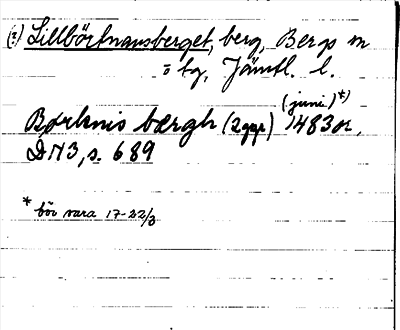 (2) Lillbörtnansberget, berg, Bergs sn
o tg, Jämtl. l.
(juni)*)
Børknis bærgh (2ggr) 1483 or,
DN3, s. 689
* bör vara 17-22/3